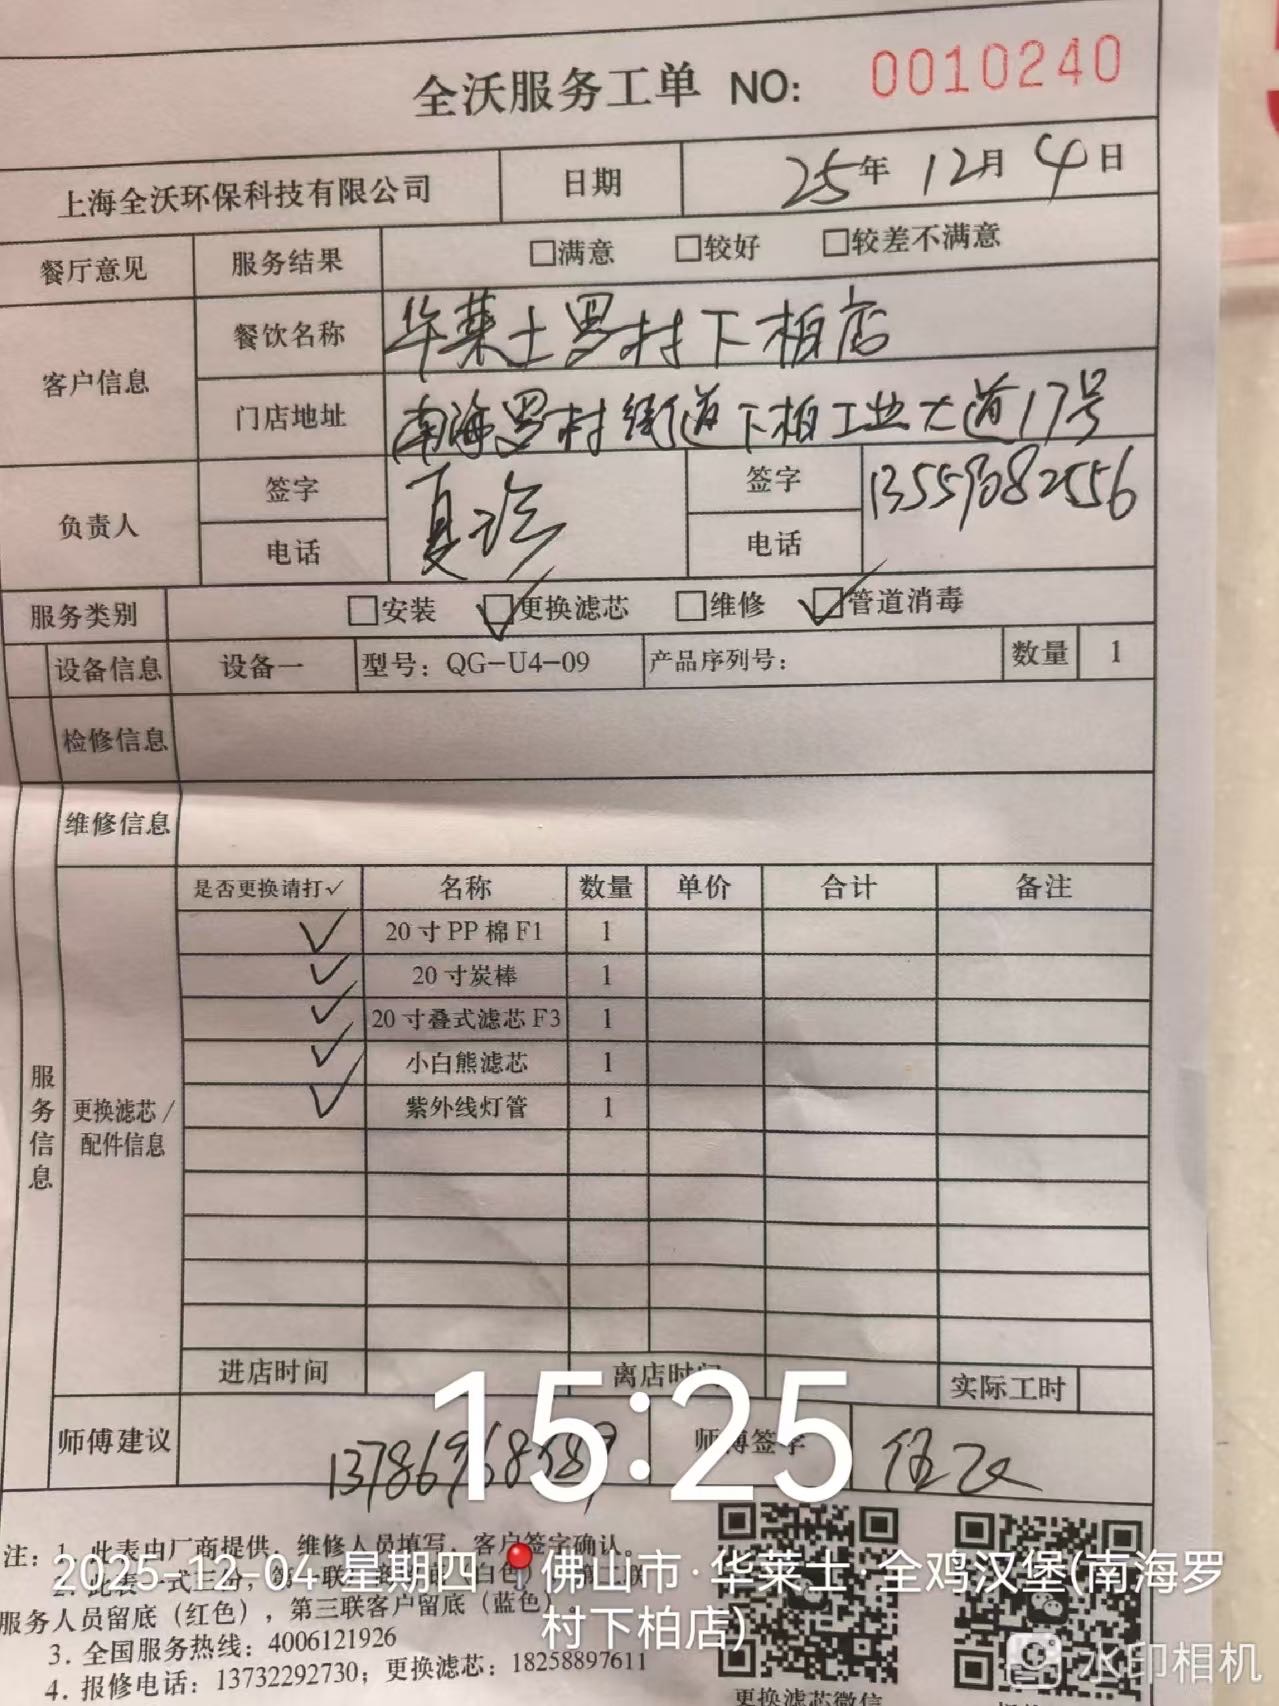 全沃服务工单 NO: 0010240
上海全沃环保科技有限公司 日期 25年 12月 4日
餐厅意见 服务结果 □满意 □较好 □较差不满意
客户信息 餐饮名称 华莱士罗村下柏店
门店地址 南海罗村街道下柏工业大道17号
负责人 签字 夏 签字 13559082556
电话 电话
服务类别 □安装 ☑更换滤芯 □维修 ☑管道消毒
设备信息 设备一 型号：QG-U4-09 产品序列号： 数量 1
检修信息
维修信息
服务信息
更换滤芯/
配件信息
是否更换请打✓ 名称 数量 单价 合计 备注
✓ 20寸PP棉F1 1
✓ 20寸炭棒 1
✓ 20寸叠式滤芯F3 1
✓ 小白熊滤芯 1
✓ 紫外线灯管 1
进店时间 离店时间 实际工时
15:25
师傅建议 师傅签字 伍
注：1. 此表由厂商提供，维修人员填写，客户签字确认。
2025-12-04 星期四 佛山市·华莱士·全鸡汉堡(南海罗
村下柏店)
2. 此表一式三份，第一联
服务人员留底（红色），第三联客户留底（蓝色）。
3. 全国服务热线：4006121926
4. 报修电话：13732292730；更换滤芯：18258897611
更换滤芯微信
水印相机